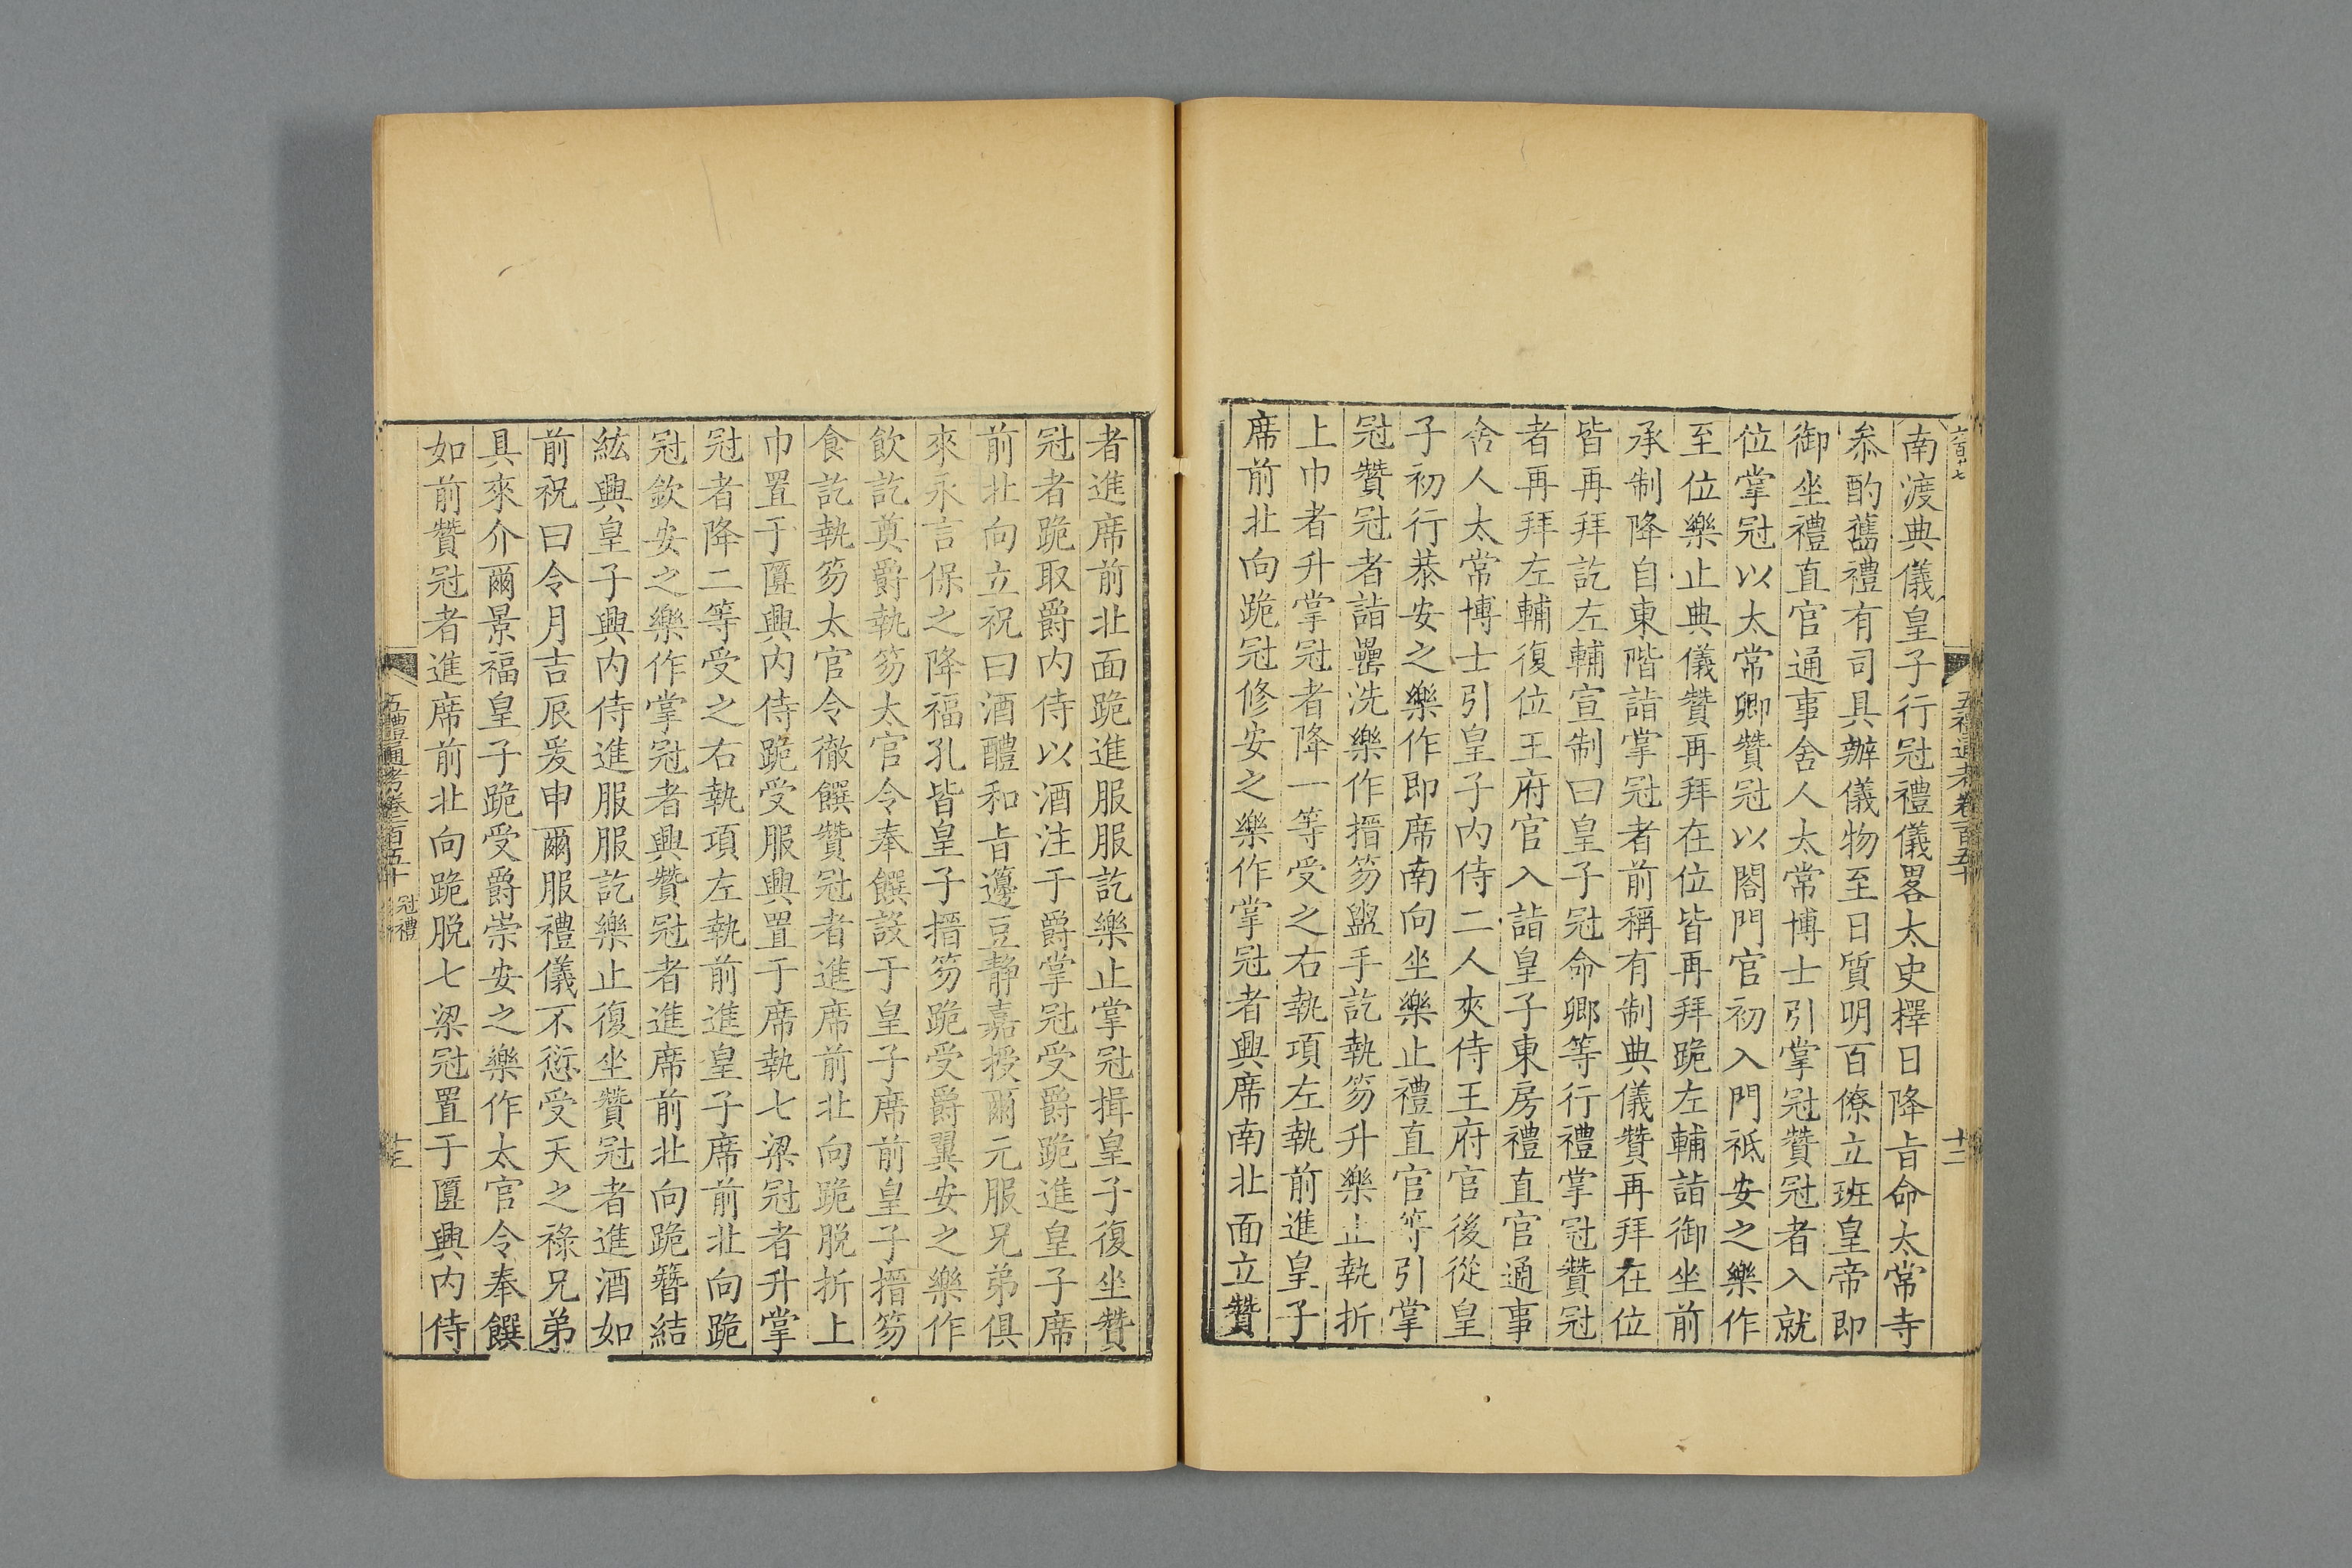 南渡典儀皇子行冠禮儀畧太史擇日降㫖命太常寺
叅酌舊禮有司具辦儀物至日質明百僚立班皇帝即
御坐禮直官通事舍人太常博士引掌冠贊冠者入就
位掌冠以太常卿贊冠以閤門官初入門祗安之樂作
至位樂止典儀贊再拜在位皆再拜跪左輔詣御坐前
承制降自東階詣掌冠者前稱有制典儀贊再拜在位
皆再拜訖左輔宣制曰皇子冠命卿等行禮掌冠贊冠
者再拜左輔復位王府官入詣皇子東房禮直官通事
舍人太常博士引皇子内侍二人夾侍王府官後從皇
子初行恭安之樂作即席南向坐樂止禮直官等引掌
冠贊冠者詣罍洗樂作搢笏盥手訖執笏升樂止執折
上巾者升掌冠者降一等受之右執項左執前進皇子
席前北向跪冠修安之樂作掌冠者興席南北面立贊
者進席前北面跪進服服訖樂止掌冠揖皇子復坐贊
冠者跪取爵内侍以酒注于爵掌冠受爵跪進皇子席
前北向立祝曰酒醴和㫖籩豆静嘉授爾元服兄弟俱
來永言保之降福孔皆皇子搢笏跪受爵翼安之樂作
飲訖奠爵執笏太官令奉饌設于皇子席前皇子搢笏
食訖執笏太官令徹饌贊冠者進席前北向跪脱折上
巾置于匴興内侍跪受服興置于席執七梁冠者升掌
冠者降二等受之右執項左執前進皇子席前北向跪
冠欽安之樂作掌冠者興贊冠者進席前北向跪簪結
紘興皇子興内侍進服服訖樂止復坐贊冠者進酒如
前祝曰令月吉辰爰申爾服禮儀不愆受天之祿兄弟
具來介爾景福皇子跪受爵崇安之樂作太官令奉饌
如前贊冠者進席前北向跪脱七梁冠置于匴興内侍
五禮通考卷一百五十
冠禮
十三